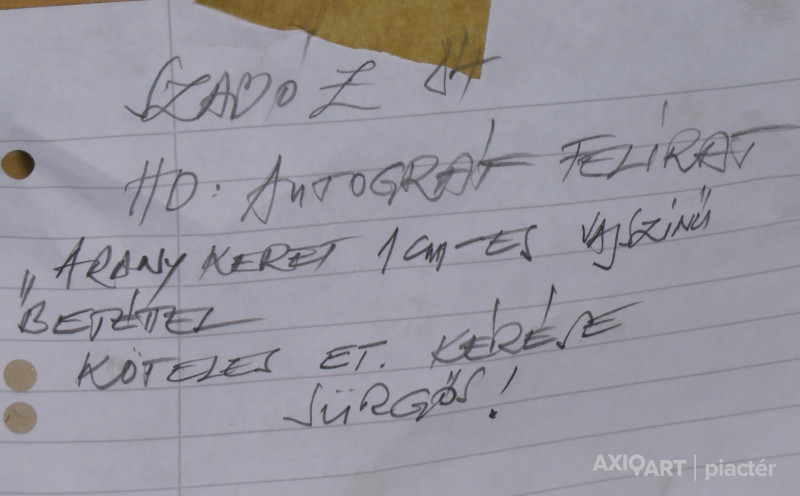 SZABO Z
HD. AUTOGRÁF FELÍRAT
„ARANY KERET 1 cm-ES VAJSZÍNŰ
BETÉTEL
KÖTELES ET. KÉRÉSE
SÜRGŐS!
AXIOART | piactér